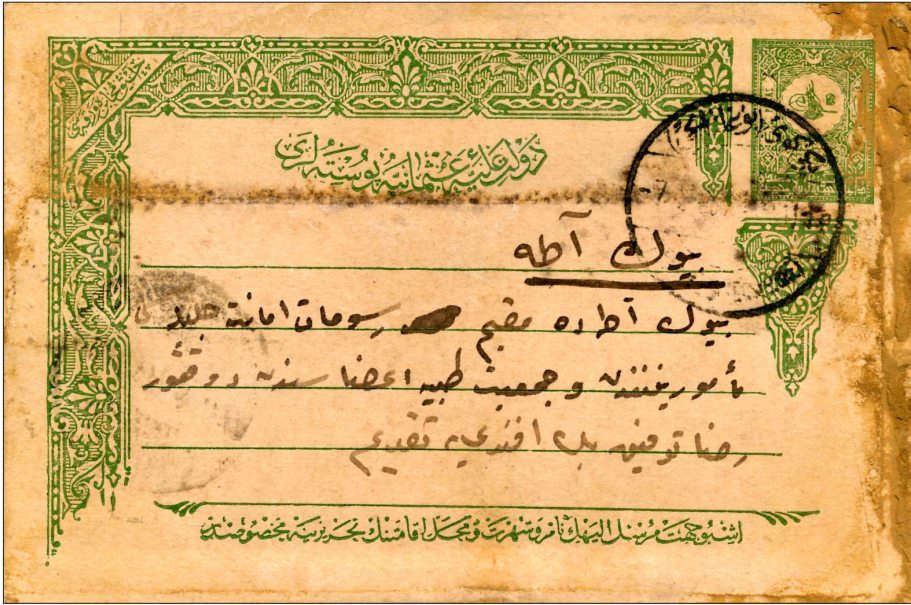 دولت علیهٔ عثمانیه پوسته لری
بیوك آطه
بیوك آطه ده مقیم رسومات امانت جلیله
مأمورینندن و جمعیت طبیه اعضاسندن دوقتور
رضا توفیق بك افندی یه تقدیم
اشبو جهت مرسل الیهك نام و شهرت و محل اقامتنك تحریرینه مخصوصدر